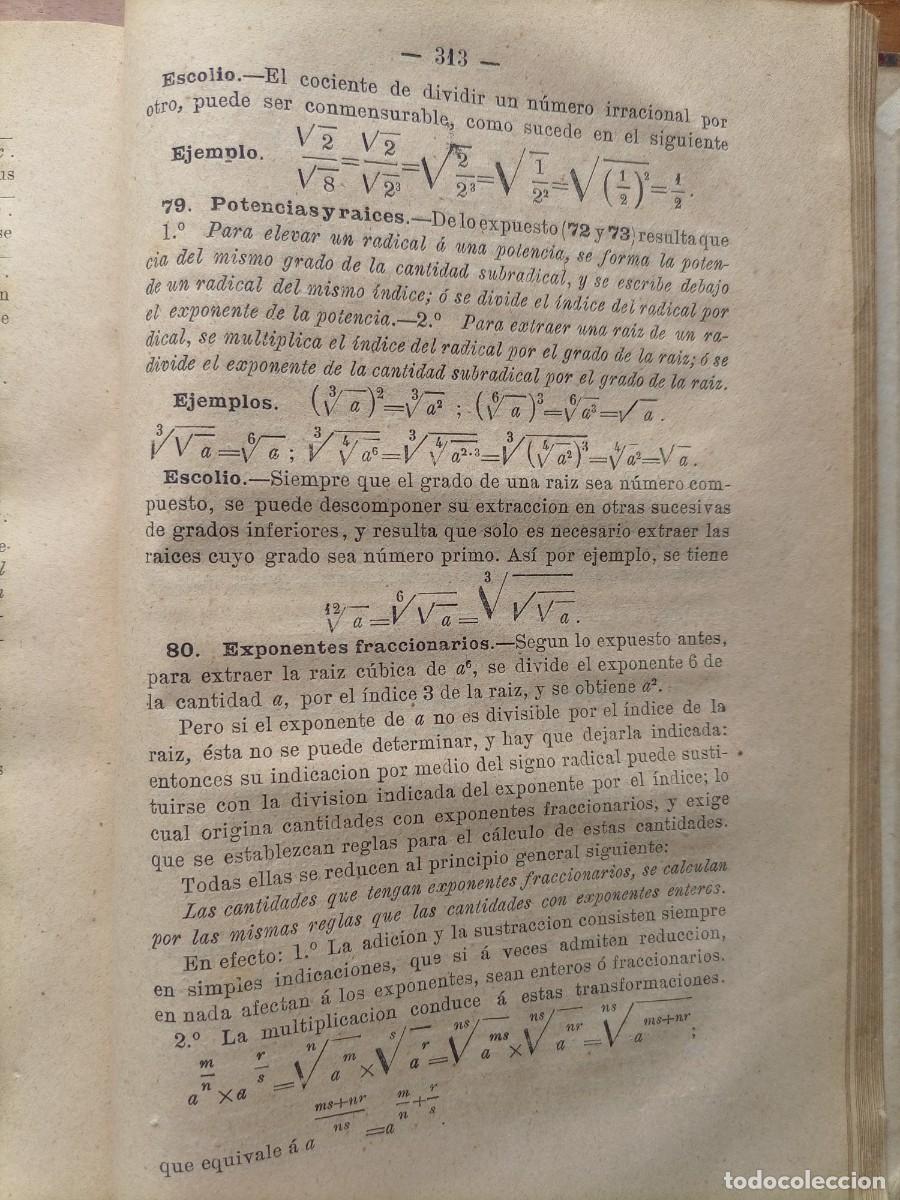 — 313 —
Escolio.—El cociente de dividir un número irracional por
otro, puede ser conmensurable, como sucede en el siguiente
Ejemplo. √2/√8=√2/√2³=√(2/2³)=√(1/2²)=√((1/2)²)=1/2.
79. Potencias y raices.—De lo expuesto (72 y 73) resulta que
1.º Para elevar un radical á una potencia, se forma la poten-
cia del mismo grado de la cantidad subradical, y se escribe debajo
de un radical del mismo índice; ó se divide el índice del radical por
el exponente de la potencia.—2.º Para extraer una raiz de un ra-
dical, se multiplica el índice del radical por el grado de la raiz; ó se
divide el exponente de la cantidad subradical por el grado de la raiz.
Ejemplos. (∛a)²=∛a² ; (⁶√a)³=⁶√a³=√a.
∛(√a)=⁶√a ; ∛(∜a⁶)=∛(∜a²·³)=∛((∜a²)³)=∜a²=√a.
Escolio.—Siempre que el grado de una raiz sea número com-
puesto, se puede descomponer su extraccion en otras sucesivas
de grados inferiores, y resulta que solo es necesario extraer las
raices cuyo grado sea número primo. Así por ejemplo, se tiene
¹²√a=⁶√(√a)=∛(√(√a)).
80. Exponentes fraccionarios.—Segun lo expuesto antes,
para extraer la raiz cúbica de a⁶, se divide el exponente 6 de
la cantidad a, por el índice 3 de la raiz, y se obtiene a².
Pero si el exponente de a no es divisible por el índice de la
raiz, ésta no se puede determinar, y hay que dejarla indicada:
entonces su indicacion por medio del signo radical puede susti-
tuirse con la division indicada del exponente por el índice; lo
cual origina cantidades con exponentes fraccionarios, y exige
que se establezcan reglas para el cálculo de estas cantidades.
Todas ellas se reducen al principio general siguiente:
Las cantidades que tengan exponentes fraccionarios, se calculan
por las mismas reglas que las cantidades con exponentes enteros.
En efecto: 1.º La adicion y la sustraccion consisten siempre
en simples indicaciones, que si á veces admiten reduccion,
en nada afectan á los exponentes, sean enteros ó fraccionarios.
2.º La multiplicacion conduce á estas transformaciones.
a^(m/n)×a^(r/s)=ⁿ√a^m×ˢ√a^r=ⁿˢ√a^ms×ⁿˢ√a^nr=ⁿˢ√a^(ms+nr);
que equivale á a^((ms+nr)/ns)=a^(m/n+r/s)
todocoleccion